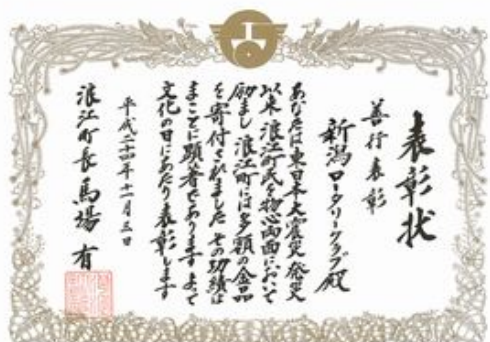 表彰状
善行表彰
新潟ロータリークラブ殿
あなたは東日本大震災発災
以来浪江町民を物心両面において
励まし浪江町には多額の金品
を寄付されました その功績は
まことに顕著であります よって
文化の日にあたり表彰します
平成二十四年十一月三日
浪江町長 馬場 有